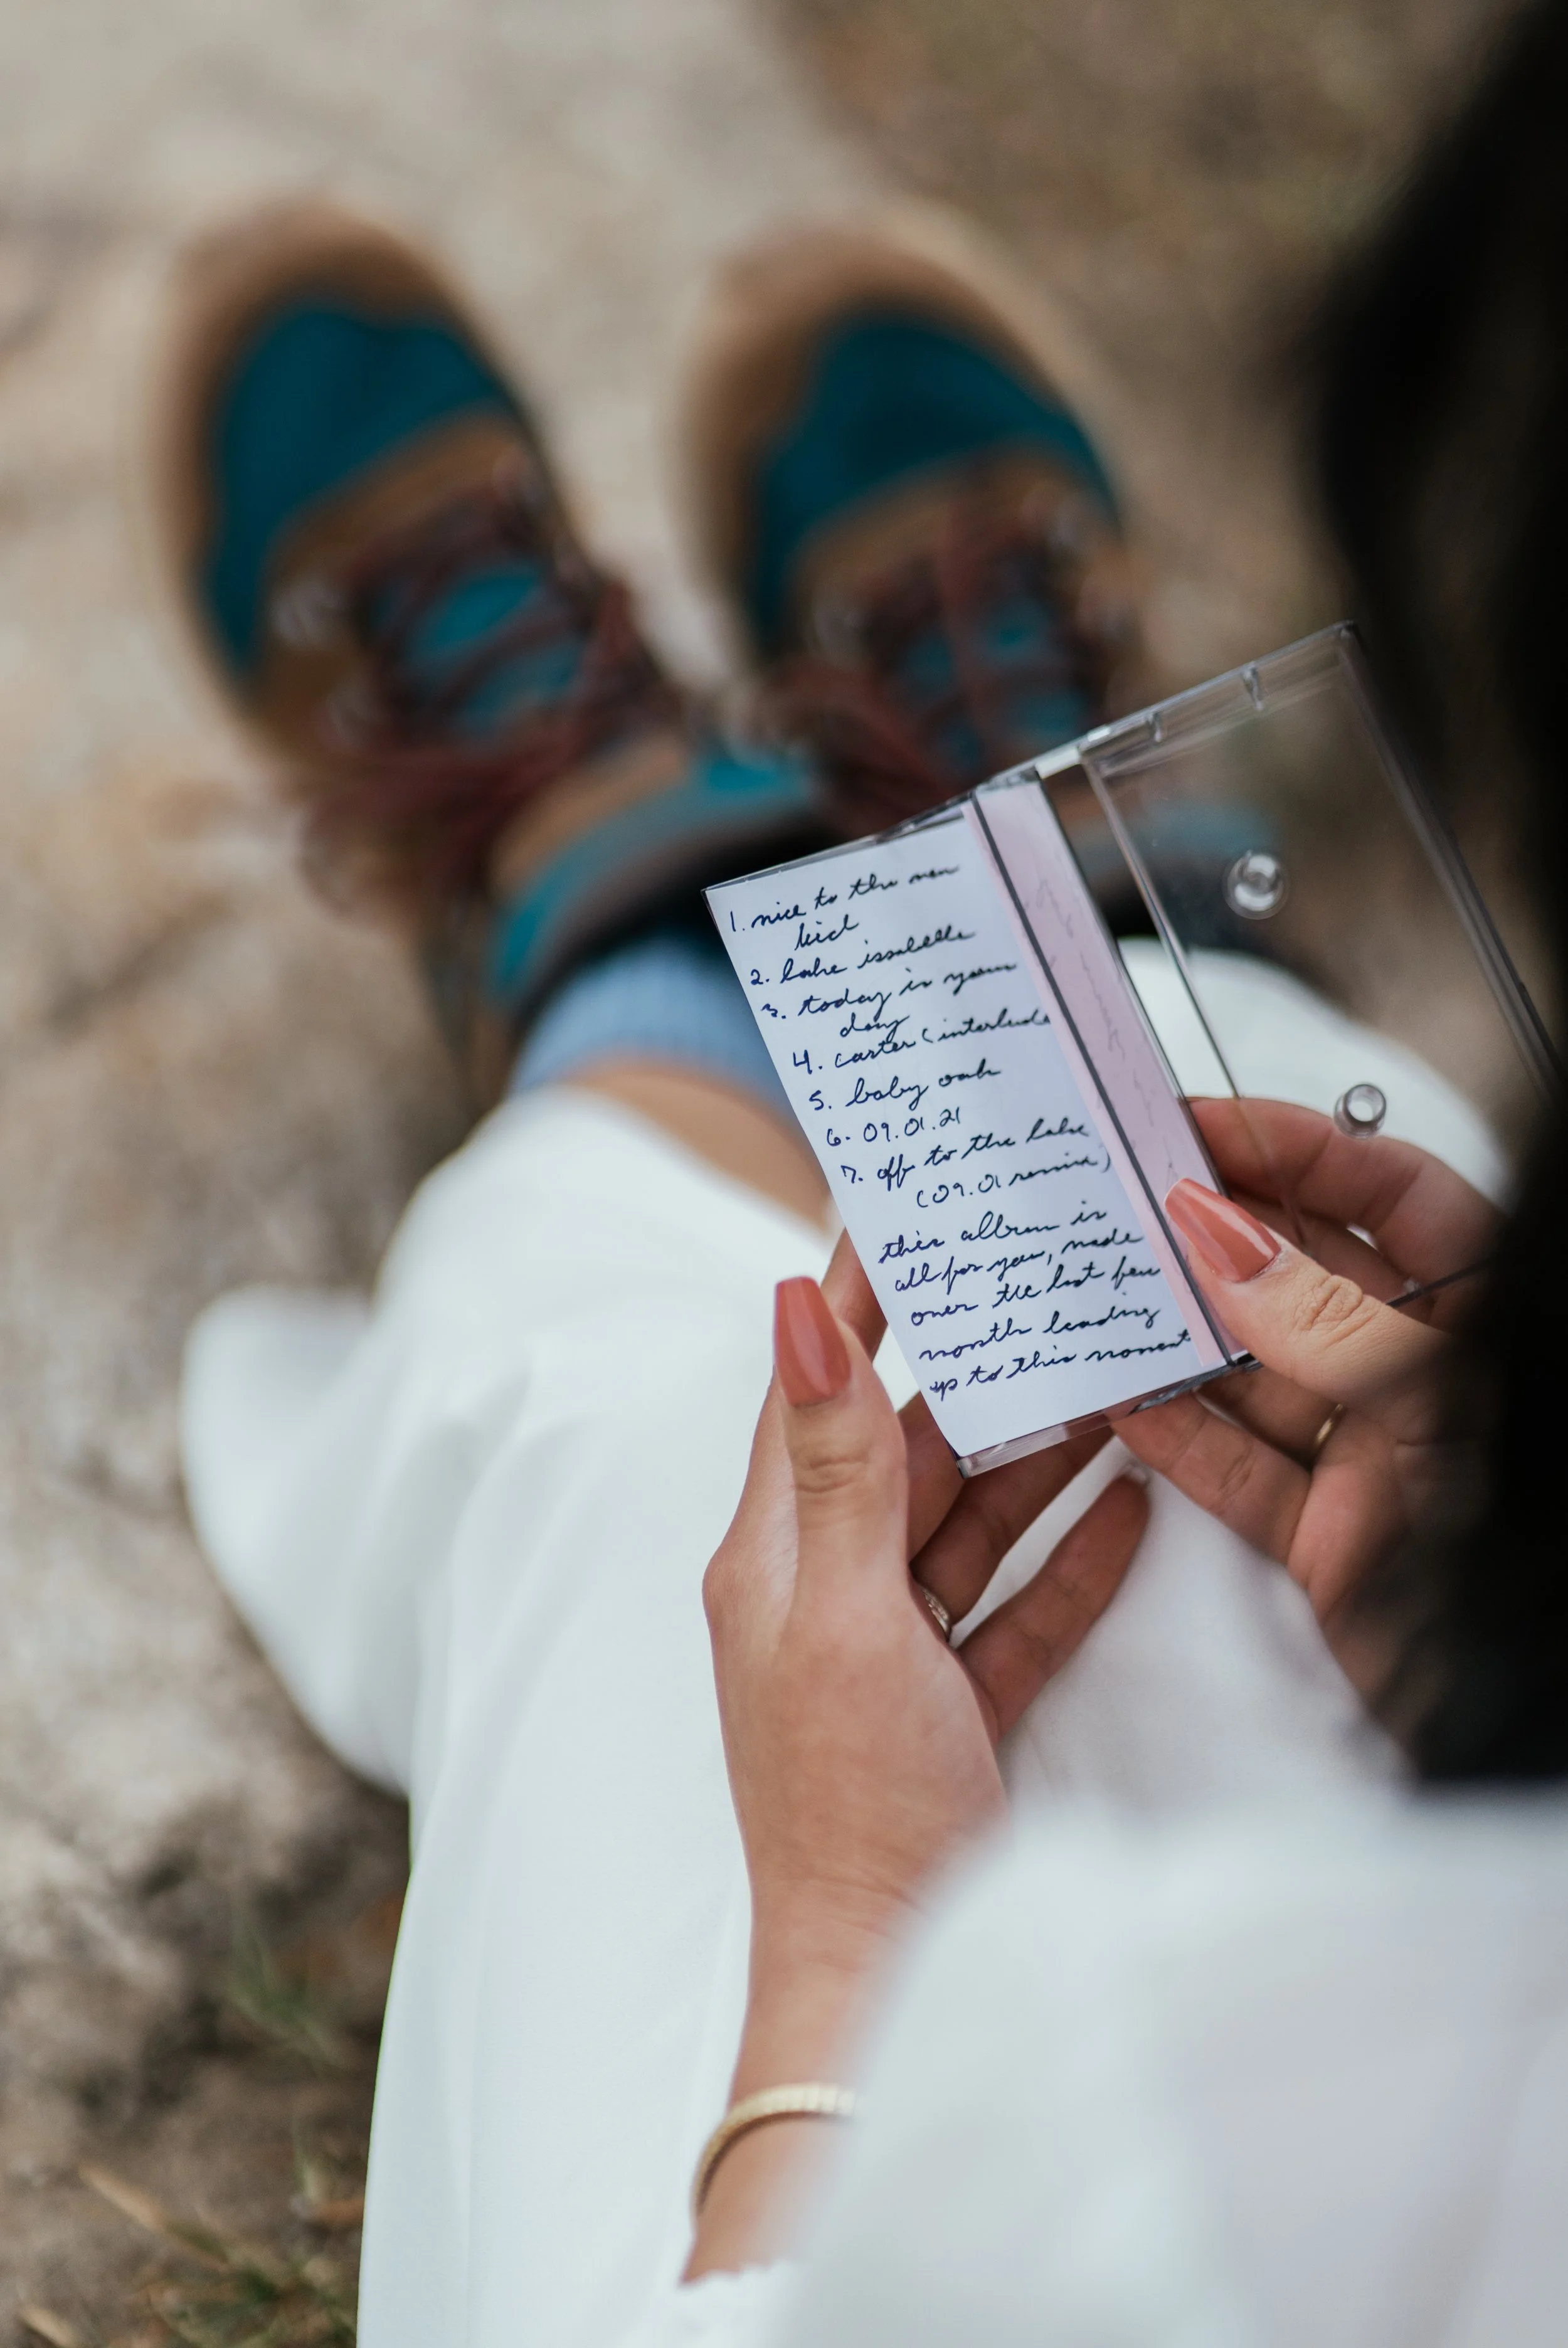 1. nice to the new
kid
2. lake issabelle
3. today is your
day
4. carter (interlude
5. baby oak
6. 09.01.21
7. off to the lake
(09.01 remix)
this album is
all for you, made
over the last few
month leading
up to this moment